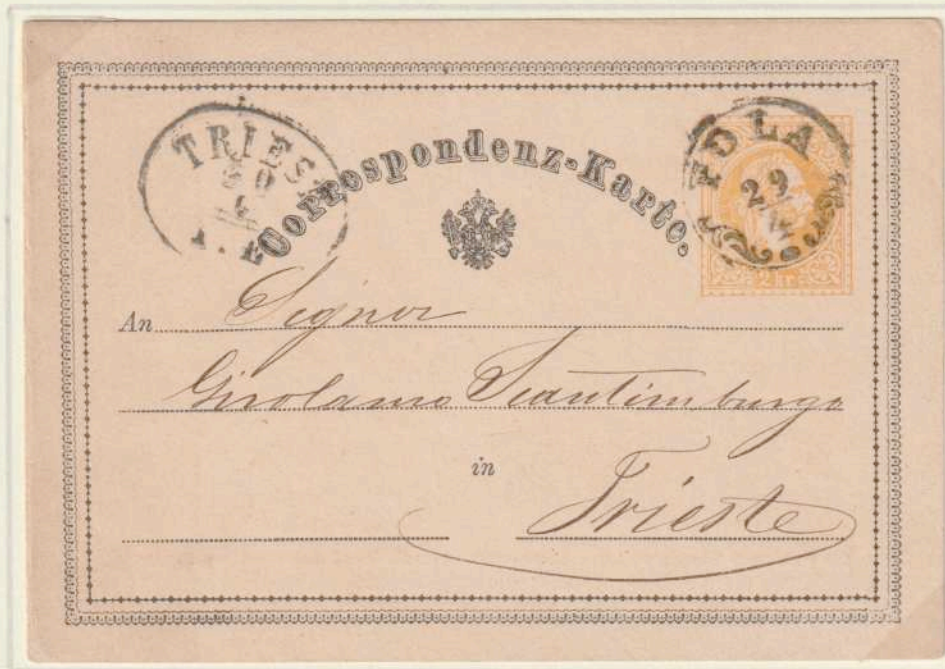 TRIES
Correspondenz-Karte.
29
2 Kr.
An Signor
Girolamo Scantimburgo
in
Trieste